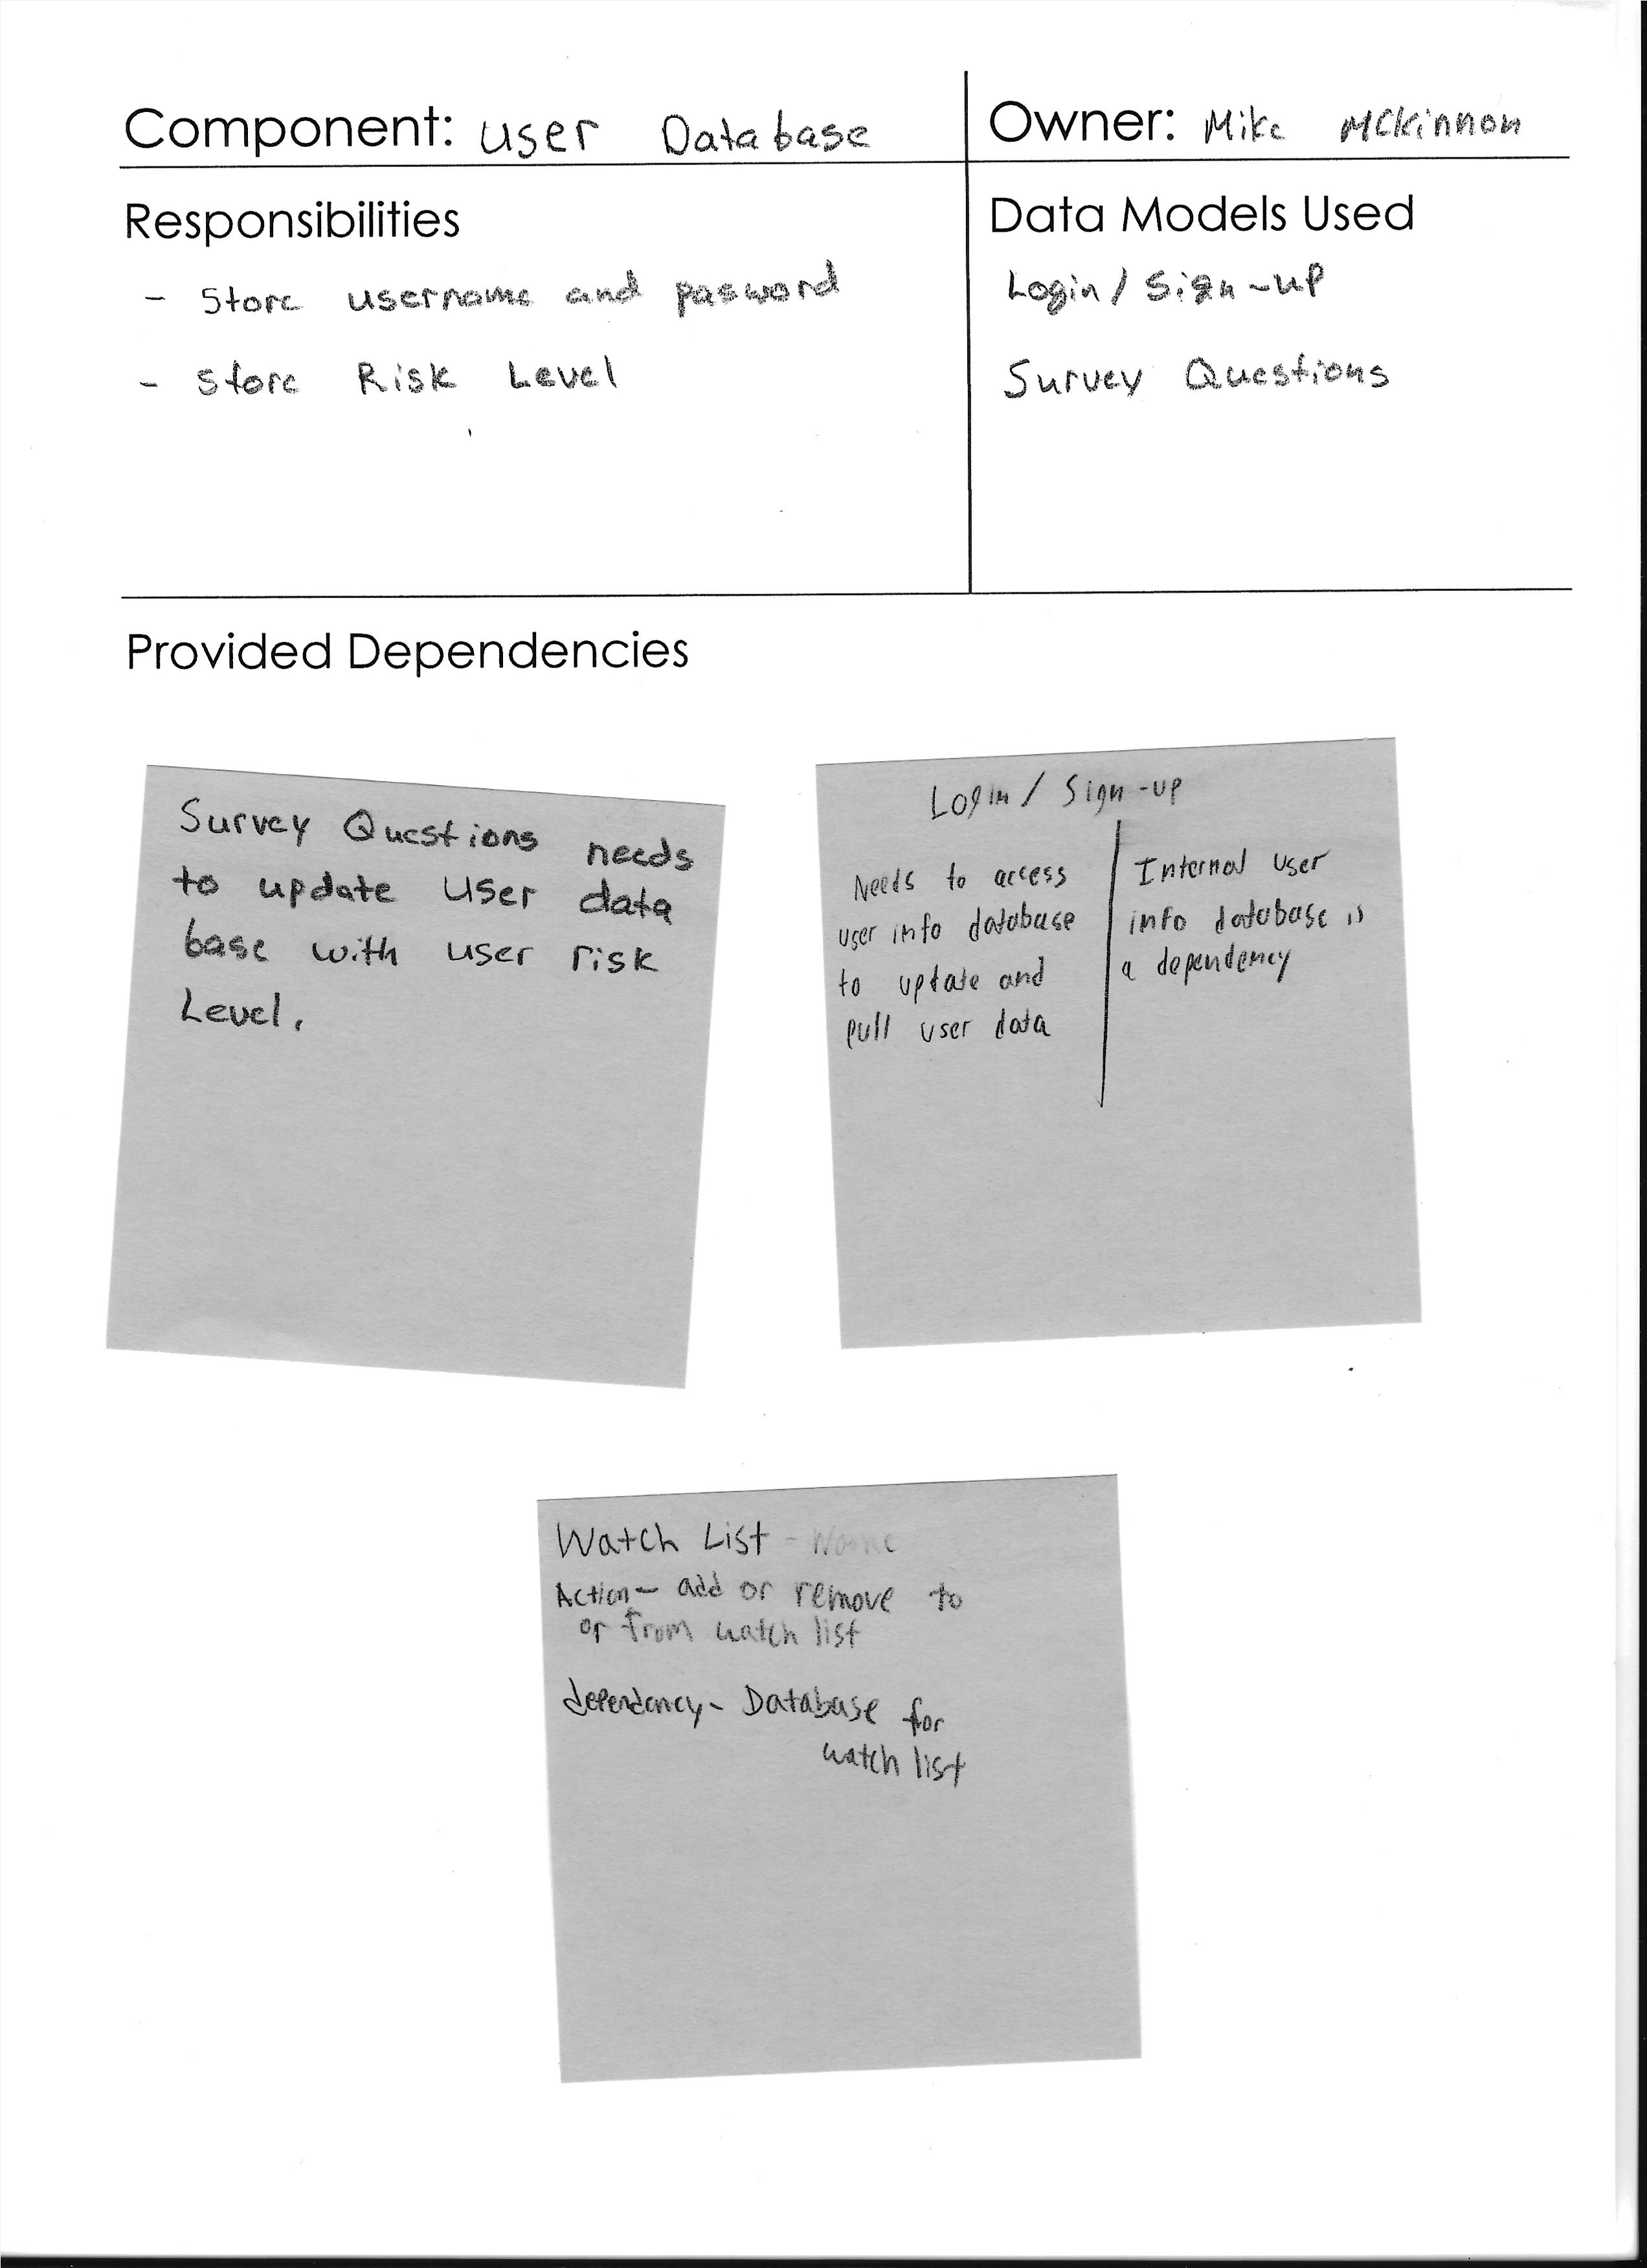 Component: User Database
Owner: Mike McKinnon
Responsibilities
- Store username and pasword
- Store Risk Level
Data Models Used
Login / Sign-up
Survey Questions
Provided Dependencies
Survey Questions needs
to update user data
base with user risk
Level.
Login / Sign-up
Needs to access
user info database
to update and
pull user data
Internal user
info database is
a dependency
Watch List - Name
Action - add or remove to
or from watch list
dependency - Database for
watch list